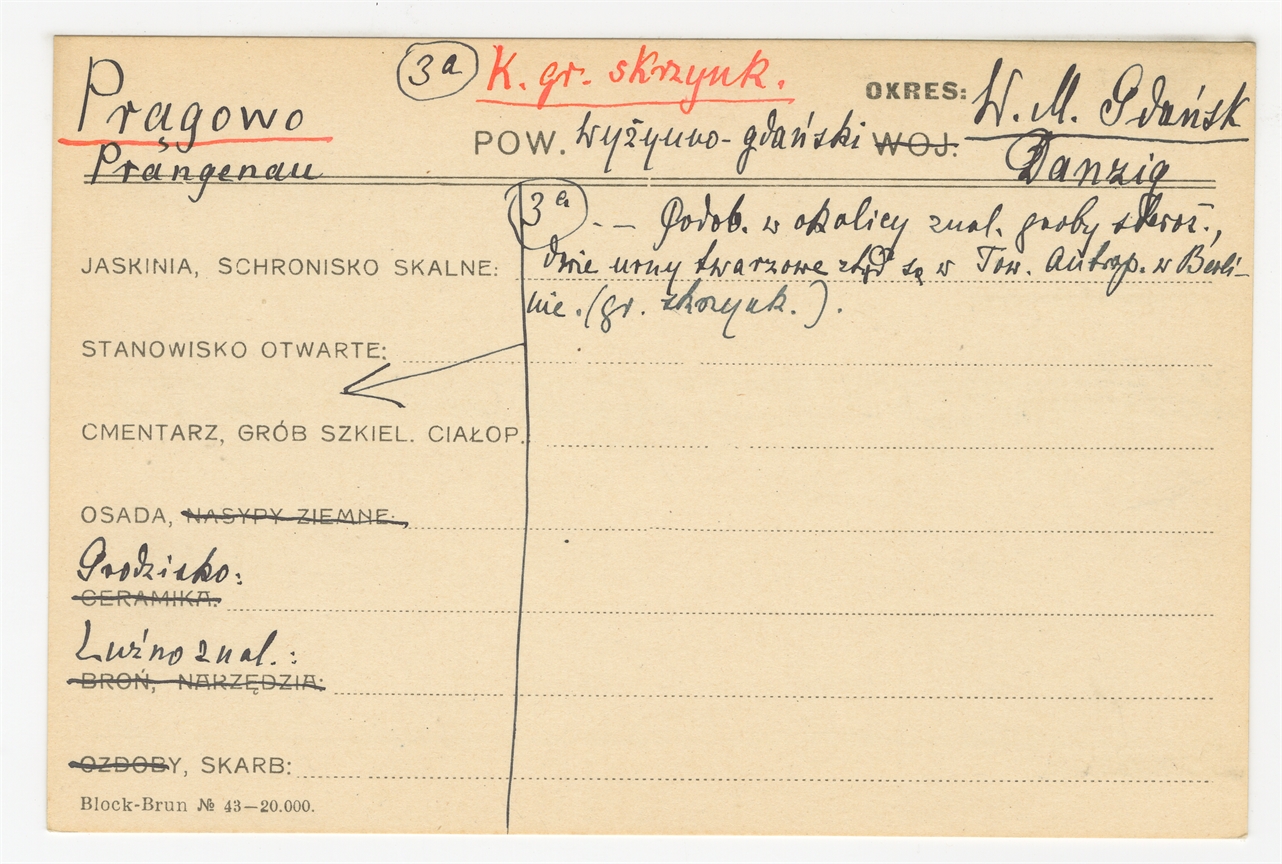 Prągowo
3a K. gr. skrzynk.
OKRES: W. M. Gdańsk
POW. Wyżynno-gdański WOJ.
Prangenau
Danzig
3a . — Podob. w okolicy znal. groby skrzyn.,
JASKINIA, SCHRONISKO SKALNE: dwie urny twarzowe stąd są w Tow. Antrop. w Berli-
nie. (gr. skrzynk.).
STANOWISKO OTWARTE:
CMENTARZ, GRÓB SZKIEL. CIAŁOP.:
OSADA, NASYPY ZIEMNE:
Grodzisko:
CERAMIKA:
Luźno znal.:
BROŃ, NARZĘDZIA:
OZDOBY, SKARB:
Block-Brun № 43—20.000.